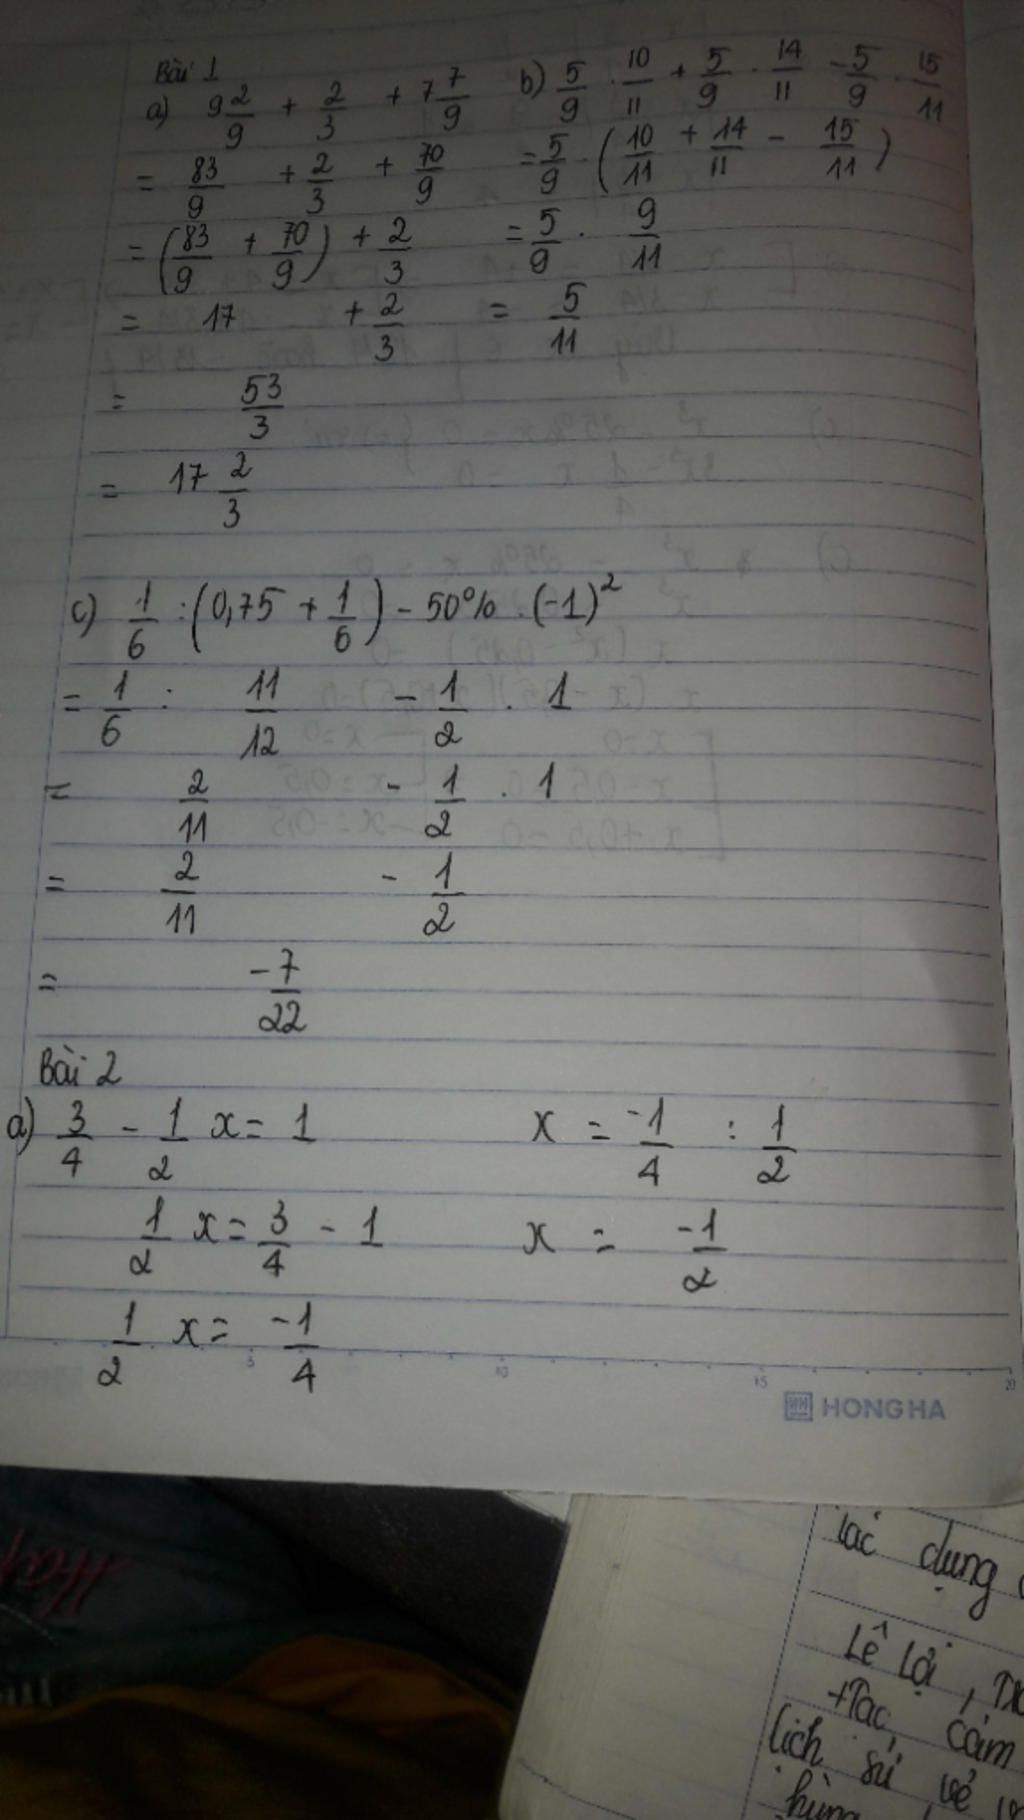 Bài 1
a) 9 2/9 + 2/3 + 7 7/9
= 83/9 + 2/3 + 70/9
= (83/9 + 70/9) + 2/3
= 17 + 2/3
= 53/3
= 17 2/3
b) 5/9 . 10/11 + 5/9 . 14/11 - 5/9 . 15/11
= 5/9 . (10/11 + 14/11 - 15/11)
= 5/9 . 9/11
= 5/11
c) 1/6 : (0,75 + 1/6) - 50% . (-1)²
= 1/6 : 11/12 - 1/2 . 1
= 2/11 - 1/2 . 1
= 2/11 - 1/2
= -7/22
Bài 2
a) 3/4 - 1/2 x = 1
1/2 x = 3/4 - 1
1/2 x = -1/4
x = -1/4 : 1/2
x = -1/2
5 10 15 20
HONG HA
tác dụng
Lê Lợi,
+Tác, cảm
lịch sử về
hùng